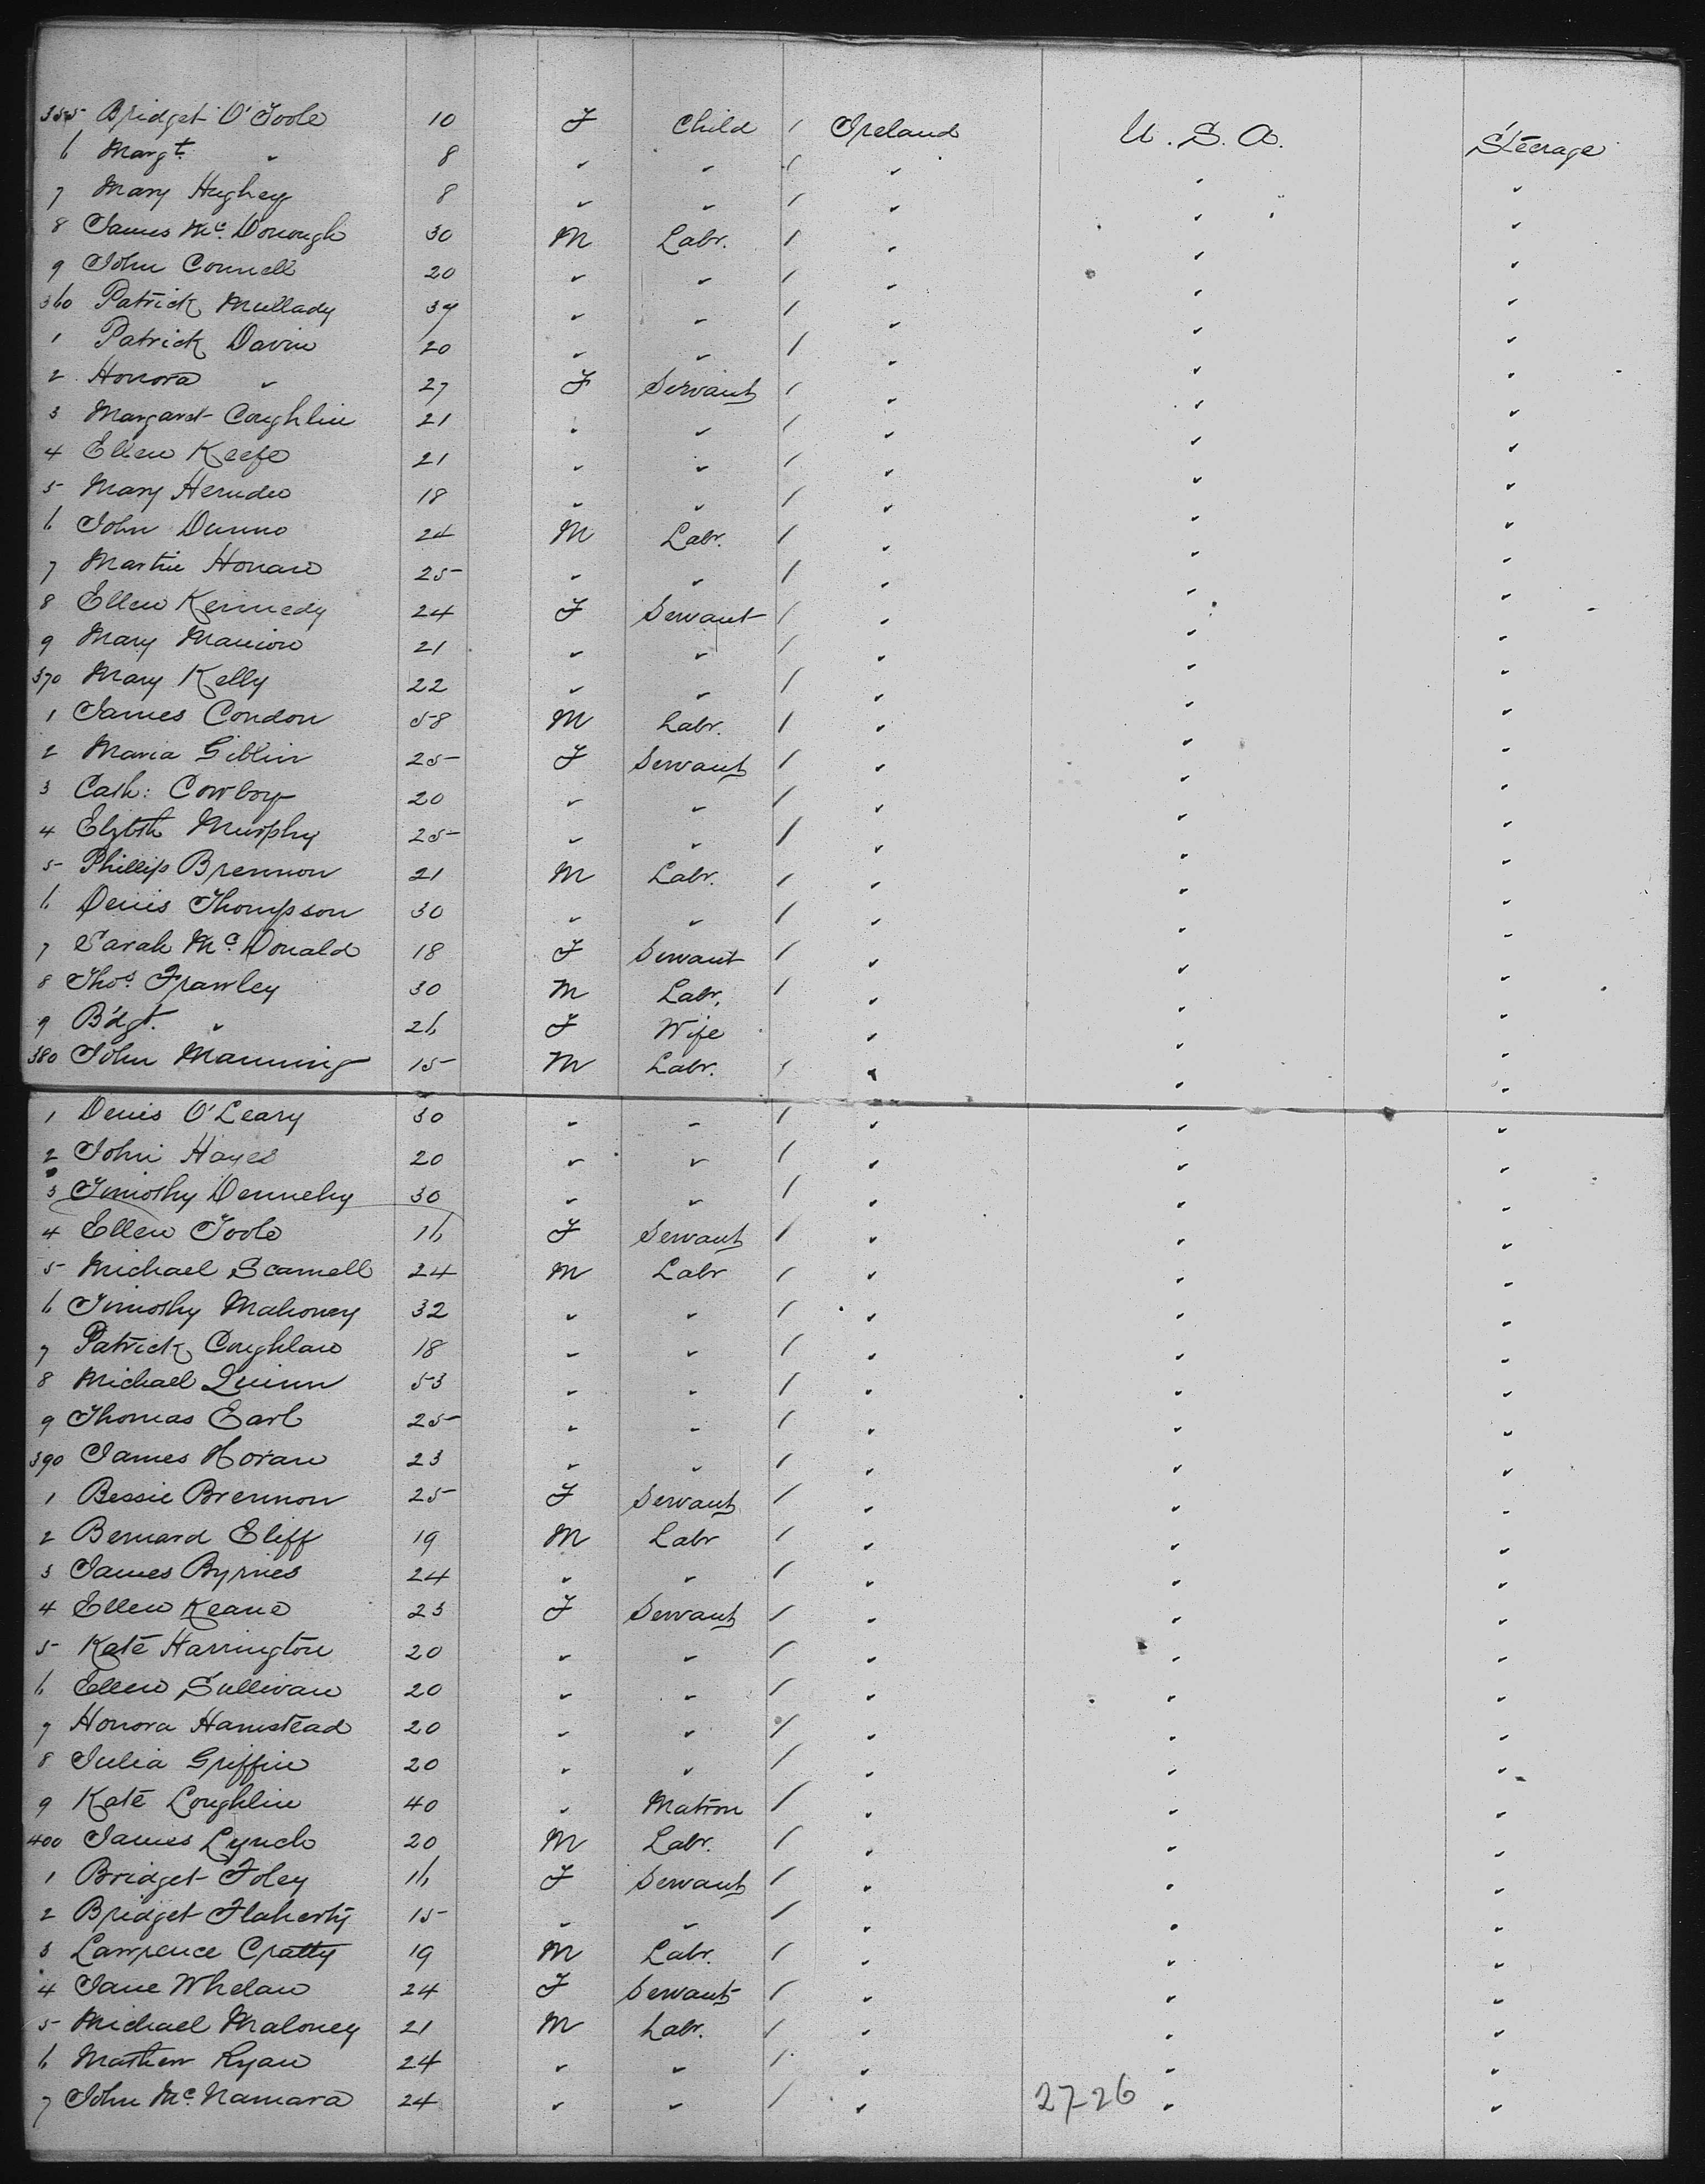 355 Bridget O'Toole 10 F Child / Ireland U.S.A. Steerage
6 Margt. " 8 " " / " " "
7 Mary Hughey 8 " " / " " "
8 James Mc. Donough 30 M Labr. / " " "
9 John Connell 20 " " / " " "
360 Patrick Mullady 37 " " / " " "
1 Patrick Davin 20 " " / " " "
2 Honora " 27 F Servant / " " "
3 Margaret Coughlin 21 " " / " " "
4 Ellen Keefe 21 " " / " " "
5 Mary 18 " " / " " "
6 John Dunne 24 M Labr. / " " "
7 Martin Honan 25 " " / " " "
8 Ellen Kennedy 24 F Servant / " " "
9 Mary Mannion 21 " " / " " "
370 Mary Kelly 22 " " / " " "
1 James Condon 58 M Labr. / " " "
2 Maria Giblin 25 F Servant / " " "
3 Cath: Cowboy 20 " " / " " "
4 Elzbth Murphy 25 " " / " " "
5 Phillip Brennon 21 M Labr. / " " "
6 Denis Thompson 30 " " / " " "
7 Sarah Mc. Donald 18 F Servant / " " "
8 Thos. Frawley 30 M Labr. / " " "
9 B'dgt. " 26 F Wife " " "
380 John Manning 15 M Labr. / " " "
1 Denis O'Leary 30 " " / " " "
2 John Hayes 20 " " / " " "
3 Timothy Dennehy 30 " " / " " "
4 Ellen Toole 16 F Servant / " " "
5 Michael Scannell 24 M Labr / " " "
6 Timothy Mahoney 32 " " / " " "
7 Patrick Coughlan 18 " " / " " "
8 Michael Quinn 53 " " / " " "
9 Thomas Earl 25 " " / " " "
390 James Horan 23 " " / " " "
1 Bessie Brennon 25 F Servant / " " "
2 Bernard Eliff 19 M Labr / " " "
3 James Byrnes 24 " " / " " "
4 Ellen Keane 23 F Servant / " " "
5 Kate Harrington 20 " " / " " "
6 Ellen Sullivan 20 " " / " " "
7 Honora Hamstead 20 " " / " " "
8 Julia Griffin 20 " " / " " "
9 Kate Loughlin 40 " Matron / " " "
400 James Lynch 20 M Labr. / " " "
1 Bridget Foley 16 F Servant / " " "
2 Bridget Flaherty 15 " " / " " "
3 Lawrence Cratty 19 M Labr. / " " "
4 Jane Whelan 24 F Servant / " " "
5 Michael Maloney 21 M Labr. / " " "
6 Mathew Ryan 24 " " / " " "
7 John Mc. Namara 24 " " / " " "
2726